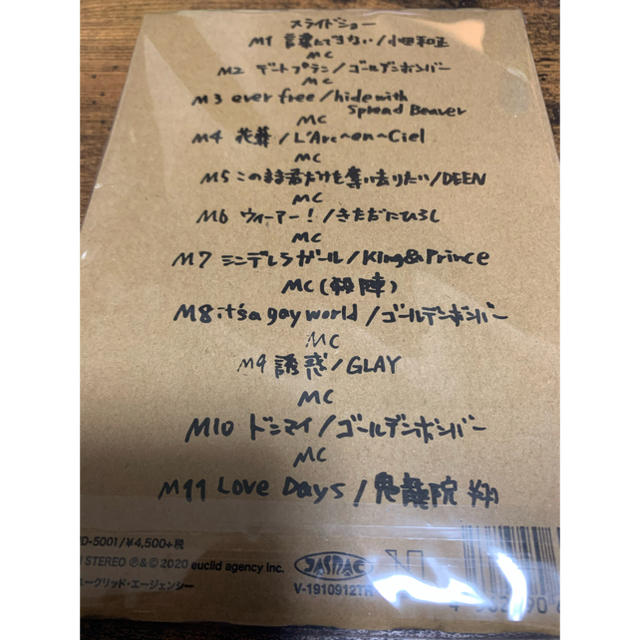 スライドショー
M1 言葉にできない/小田和正
MC
M2 デートプラン/ゴールデンボンバー
MC
M3 ever free/hide with
Spread Beaver
MC
M4 花葬/L'Arc~en~Ciel
MC
M5 このまま君だけを奪い去りたい/DEEN
MC
M6 ウィーアー!/きただにひろし
MC
M7 シンデレラガール/King&Prince
MC(殺陣)
M8 it's a gay world/ゴールデンボンバー
MC
M9 誘惑/GLAY
MC
M10 ドンマイ/ゴールデンボンバー
MC
M11 Love Days/鬼龍院 翔
D-5001/¥4,500+税
STEREO ℗&© 2020 euclid agency Inc.
ユークリッド・エージェンシー
JASRAC
V-1910912TH